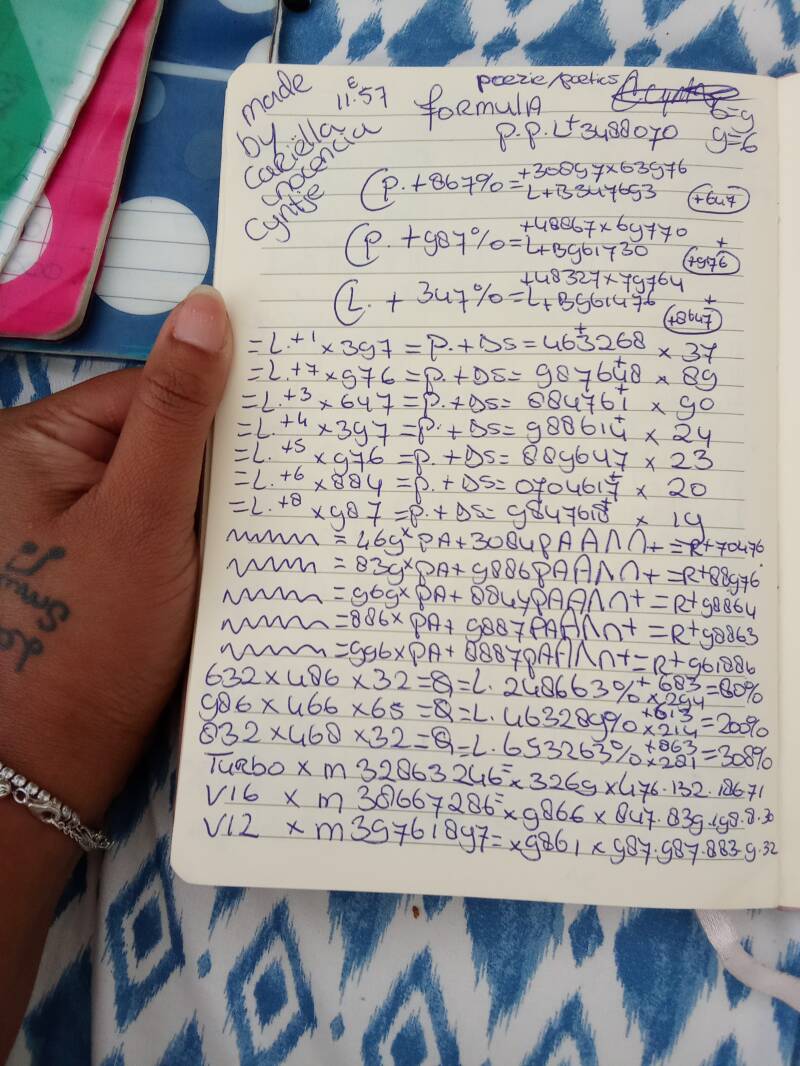 poezie/poetics
made by Cariëlla inocencia Cyntje
11:57 E
formula
6=g
g=6
p.p. L+3488070
(p. +867% = +30897×63976
L+B347693 +647
(p. +987% = +48867×69770
L+B961730 +976
(L. + 347% = +48327×79764
L+B961476 +8647
=L.+1 ×397 = p. + DS = 463268+ × 37
=L.+7 ×976 = p. + DS = 987648+ × 89
=L.+3 ×647 = p. + DS = 884761+ × 90
=L.+4 ×397 = p. + DS = 988614+ × 24
=L.+5 ×976 = p. + DS = 889647 × 23
=L.+6 ×884 = p. + DS = 0704617+ × 20
=L.+8 ×987 = p. + DS = 9847618+ × 19
= 469× PA + 3084PAA + = R+70476
= 839× PA + 9886PAA + = R+88976
= 969× PA + 8849PAA + = R+98864
= 886× PA + 9887PAA + = R+98863
= 996× PA + 8887PAA + = R+961886
632×486×32=Q=L. 248663% +683 ×294 = 80%
986×466×65=Q=L. 463289% +613 ×214 = 200%
832×468×32=Q=L. 653263% +863 ×281 = 308%
Turbo × m 32863246= ×3269×476.132.18671
V16 × m 381667286= ×9866×847.839.198.8.30
V12 × m 39761897= ×9861×987.987.883.9.32